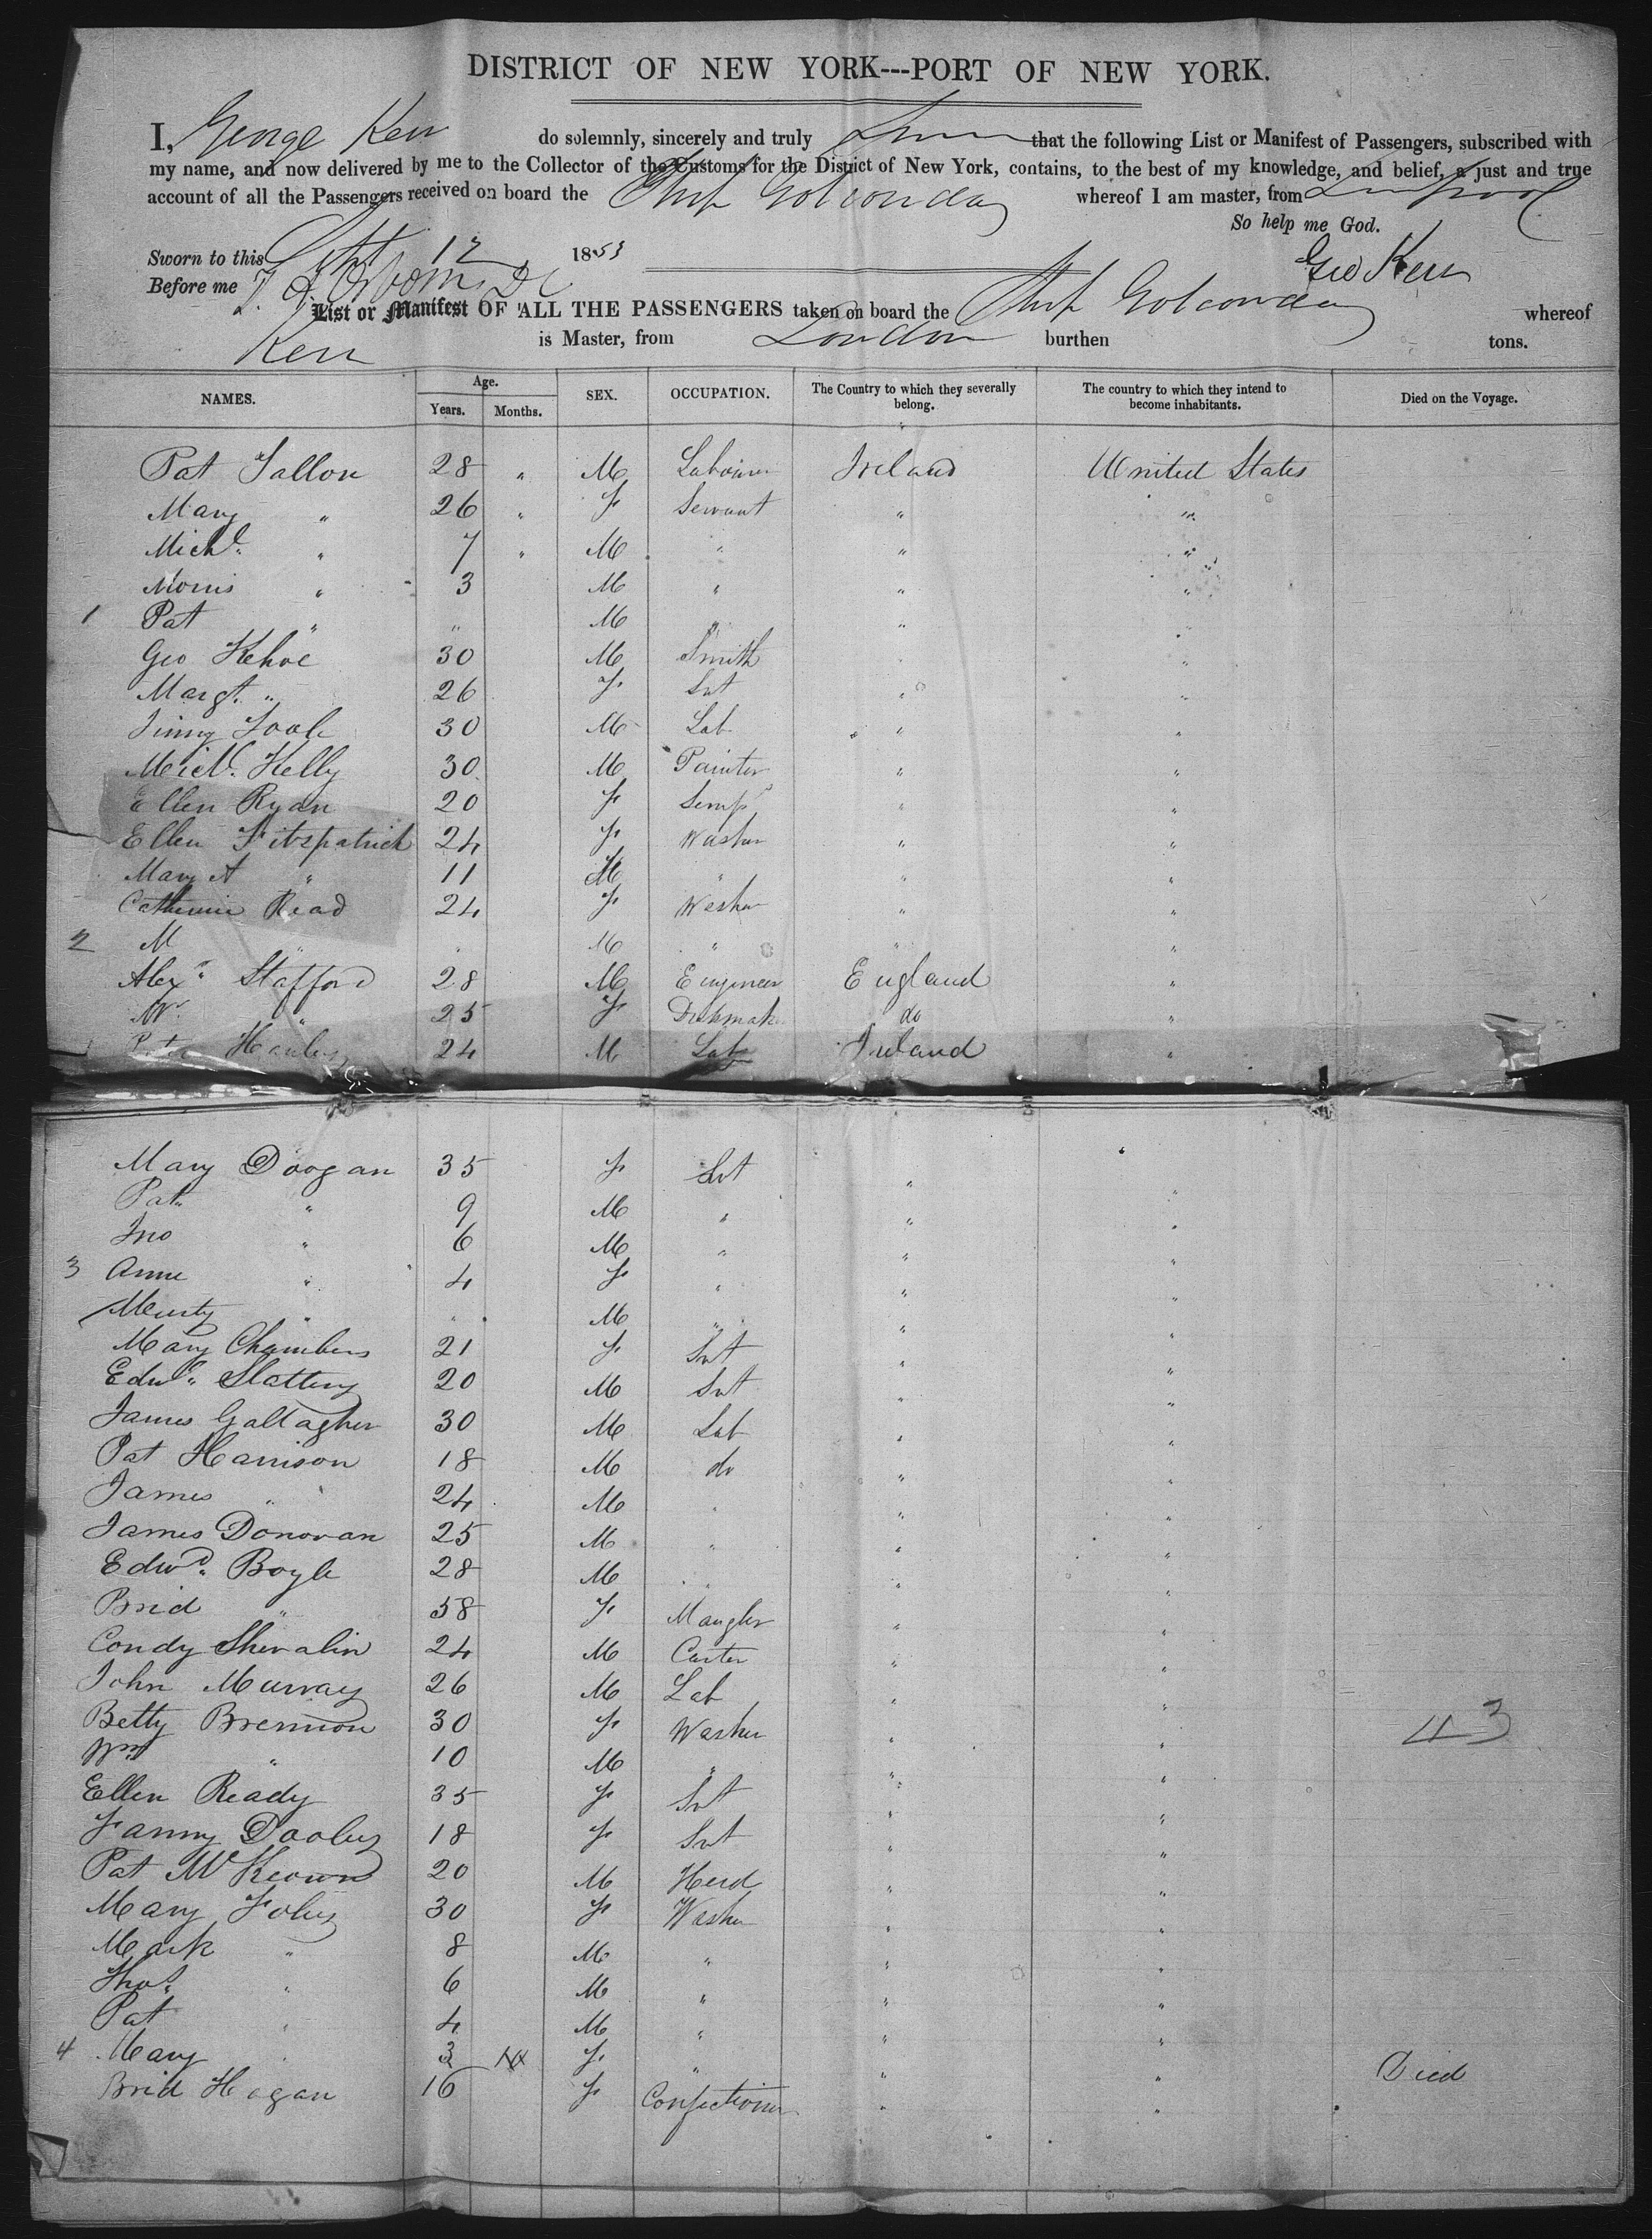 DISTRICT OF NEW YORK---PORT OF NEW YORK.
I, George Kerr do solemnly, sincerely and truly that the following List or Manifest of Passengers, subscribed with
my name, and now delivered by me to the Collector of the Customs for the District of New York, contains, to the best of my knowledge, and belief, a just and true
account of all the Passengers received on board the Ship Golconda whereof I am master, from Liverpool
So help me God.
Sworn to this Sept 12 1853
Geo Kerr
Before me
List or Manifest OF ALL THE PASSENGERS taken on board the Ship Golconda whereof
Kerr is Master, from London burthen tons.
NAMES. Age. Years. Months. SEX. OCCUPATION. The Country to which they severally belong. The country to which they intend to become inhabitants. Died on the Voyage.
Pat Fallon 28 " M Labourer Ireland United States
Mary " 26 " F Servant " "
Michl. " 7 " M " " "
Morris " 3 M " " "
1 Pat " " M " " "
Geo Kehoe 30 M Smith " "
Margt. " 26 F Svt " "
Jimmy Toole 30 M Lab " "
Michl. Kelly 30 M Painter " "
Ellen Ryan 20 F Semps " "
Ellen Fitzpatrick 24 F Washer " "
Mary A " 11 M " " "
Catherine Read 24 F Washer " "
2 M " " M " " "
Alexr. Stafford 28 M Engineer England "
" 25 F do "
Hanley 24 M Lab Ireland "
Mary Doogan 35 F Svt " "
Pat " 9 M " " "
Jno " 6 M " " "
3 Anne " 4 F " " "
Murty " " M " " "
Mary Chambers 21 F Svt " "
Edwd. Slattery 20 M Svt " "
James Gallagher 30 M Lab " "
Pat Harrison 18 M do " "
James " 24 M " " "
James Donovan 25 M " " "
Edwd. Boyle 28 M " " "
Brid " 58 F Mangler " "
Condy Shevalin 24 M Carter " "
John Murray 26 M Lab " "
Betty Brennon 30 F Washer " " 43
Wm " 10 M " " "
Ellen Ready 35 F Svt " "
Fanny Dooley 18 F Svt " "
Pat McKeown 20 M Herd " "
Mary Foley 30 F Washer " "
Mark " 8 M " " "
Thos. " 6 M " " "
Pat " 4 M " " "
4 Mary " 3 F " " " Died
Brid Hogan 16 F Confectioner " "